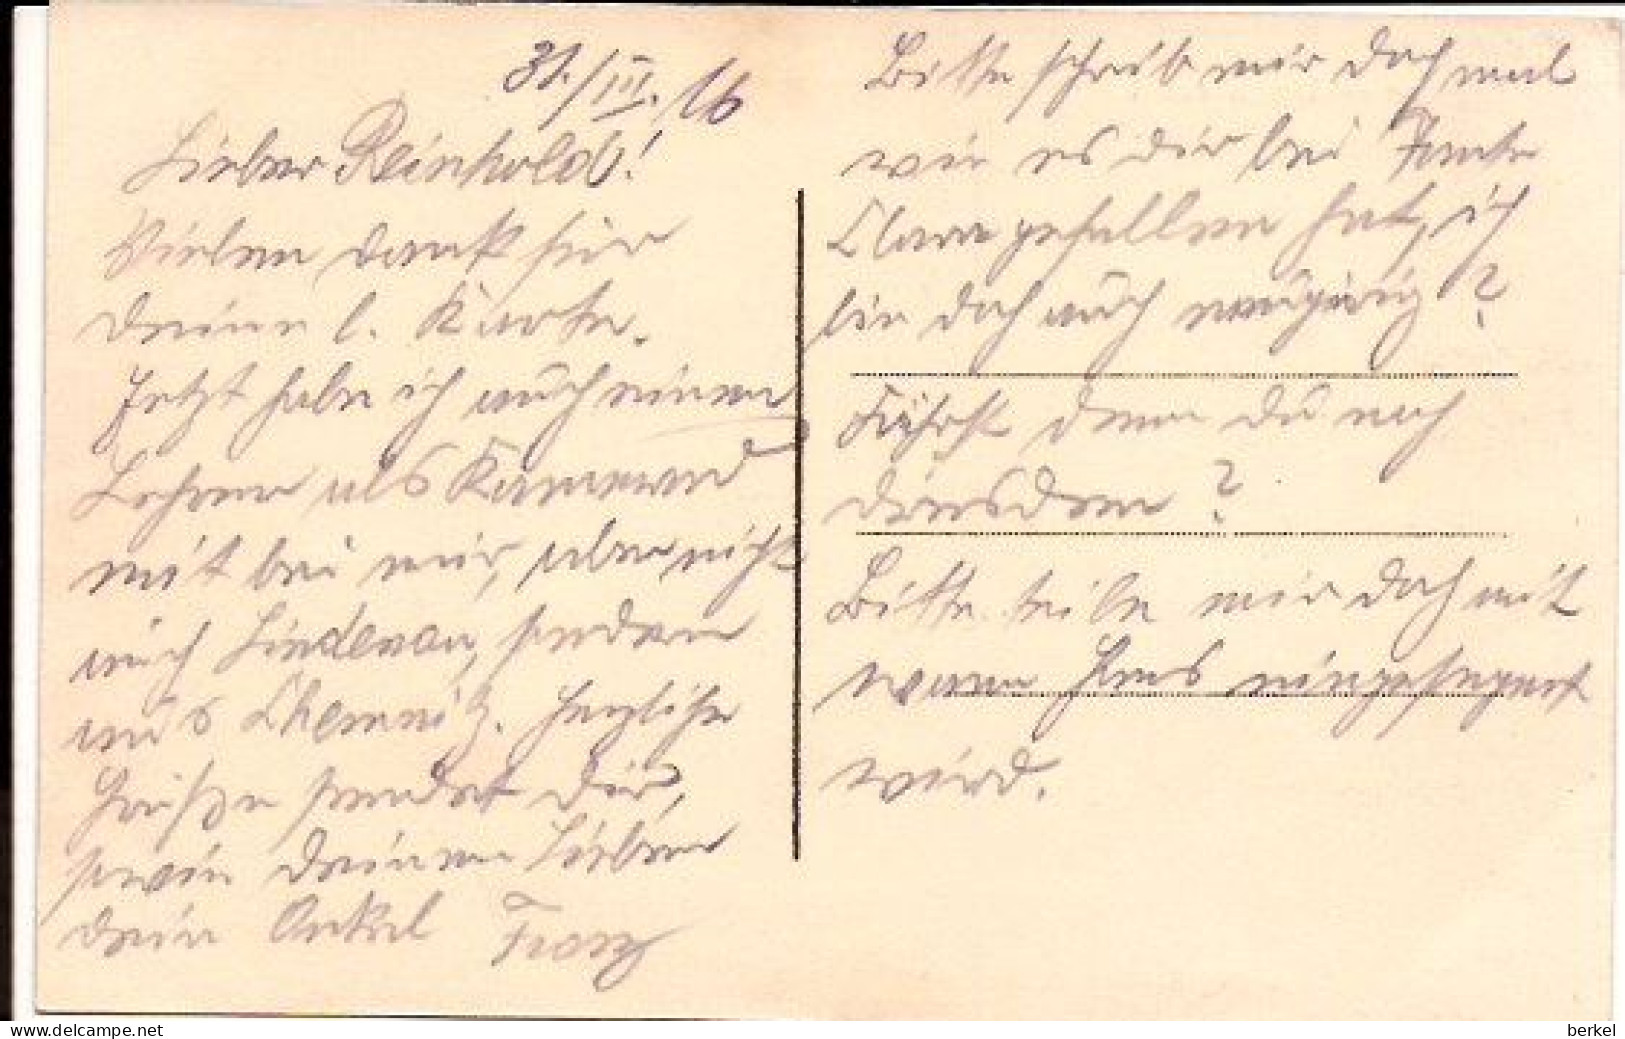 31./III./16
Lieber Reinhold!
Vielen Dank für
Deine l. Karte.
Jetzt habe ich auch einen
Lehrer als Kamerad
mit bei mir, aber nicht
aus Lindenau, sondern
aus Chemnitz. Herzliche
Grüße sendet Dir,
sowie Deinen Lieben
Dein Onkel Franz
Bitte schreib mir doch mal
wie es Dir bei Tante
Clara gefallen hat, ich
bin doch auch neugierig?
Fährst denn Du nach
Dresden?
Bitte teile mir doch mit
wann Hans eingesegnet
wird.
www.delcampe.net
berkel